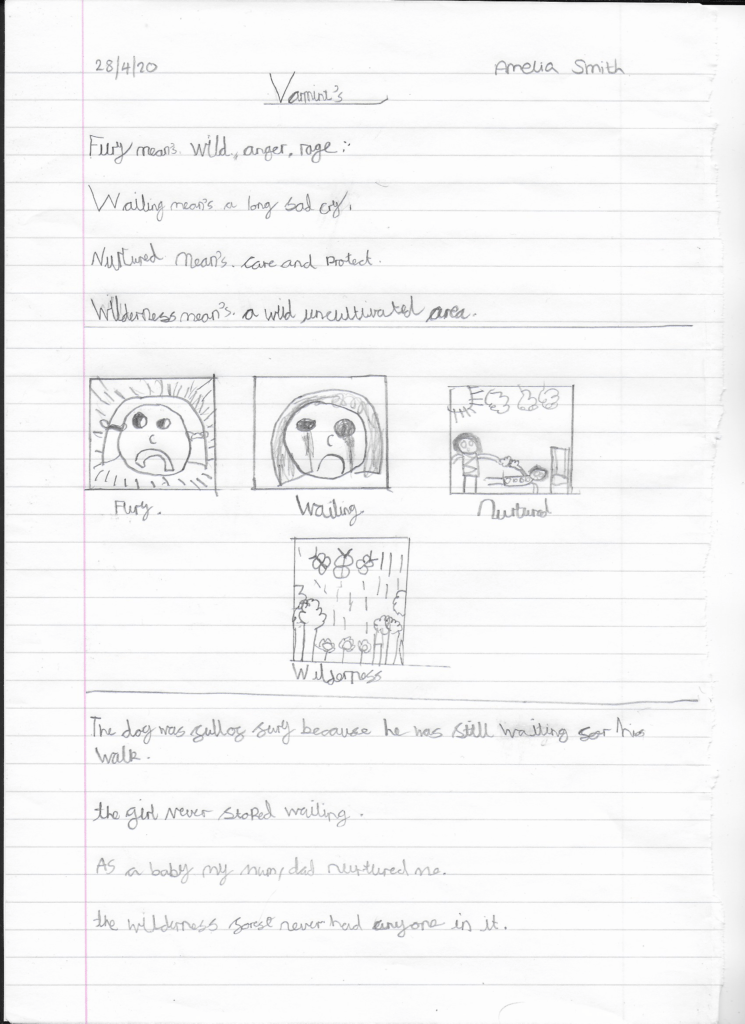 28/4/20 Amelia Smith
Varmint's
Fury mean's. Wild, anger, rage :-
Wailing mean's a long sad cry.
Nurtured Mean's. Care and Protect.
Wilderness mean's. a wild uncultivated area.
Fury. Wailing Nurtured
Wilderness
The dog was full of fury because he was still waiting for his
walk.
the girl Never stoped wailing.
As a baby my mum/dad nurtured me.
the wilderness forest never had anyone in it.